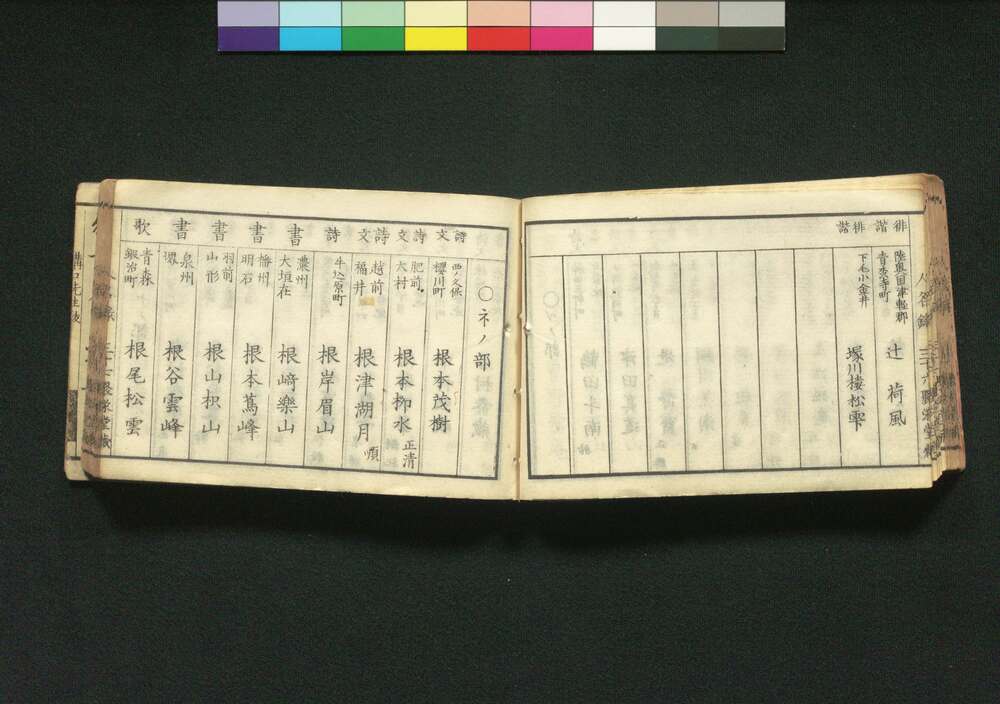 俳諧
陸奥国津軽郡
青森寺町
辻荷風
俳諧
下毛小金井
塚川棲松雫
〇ネノ部
詩文
西ノ久保
櫻川町
根本茂樹
詩文
肥前
大村
根本柳水
正清
詩文
越前
福井
根津湖月
順
詩
牛込原町
根岸眉山
書
濃州
大垣在
根﨑樂山
書
播州
明石
根本蔦峰
書
羽前
山形
根山枳山
書
泉州
堺
根谷雲峰
歌
青森
鍛冶町
根尾松雲